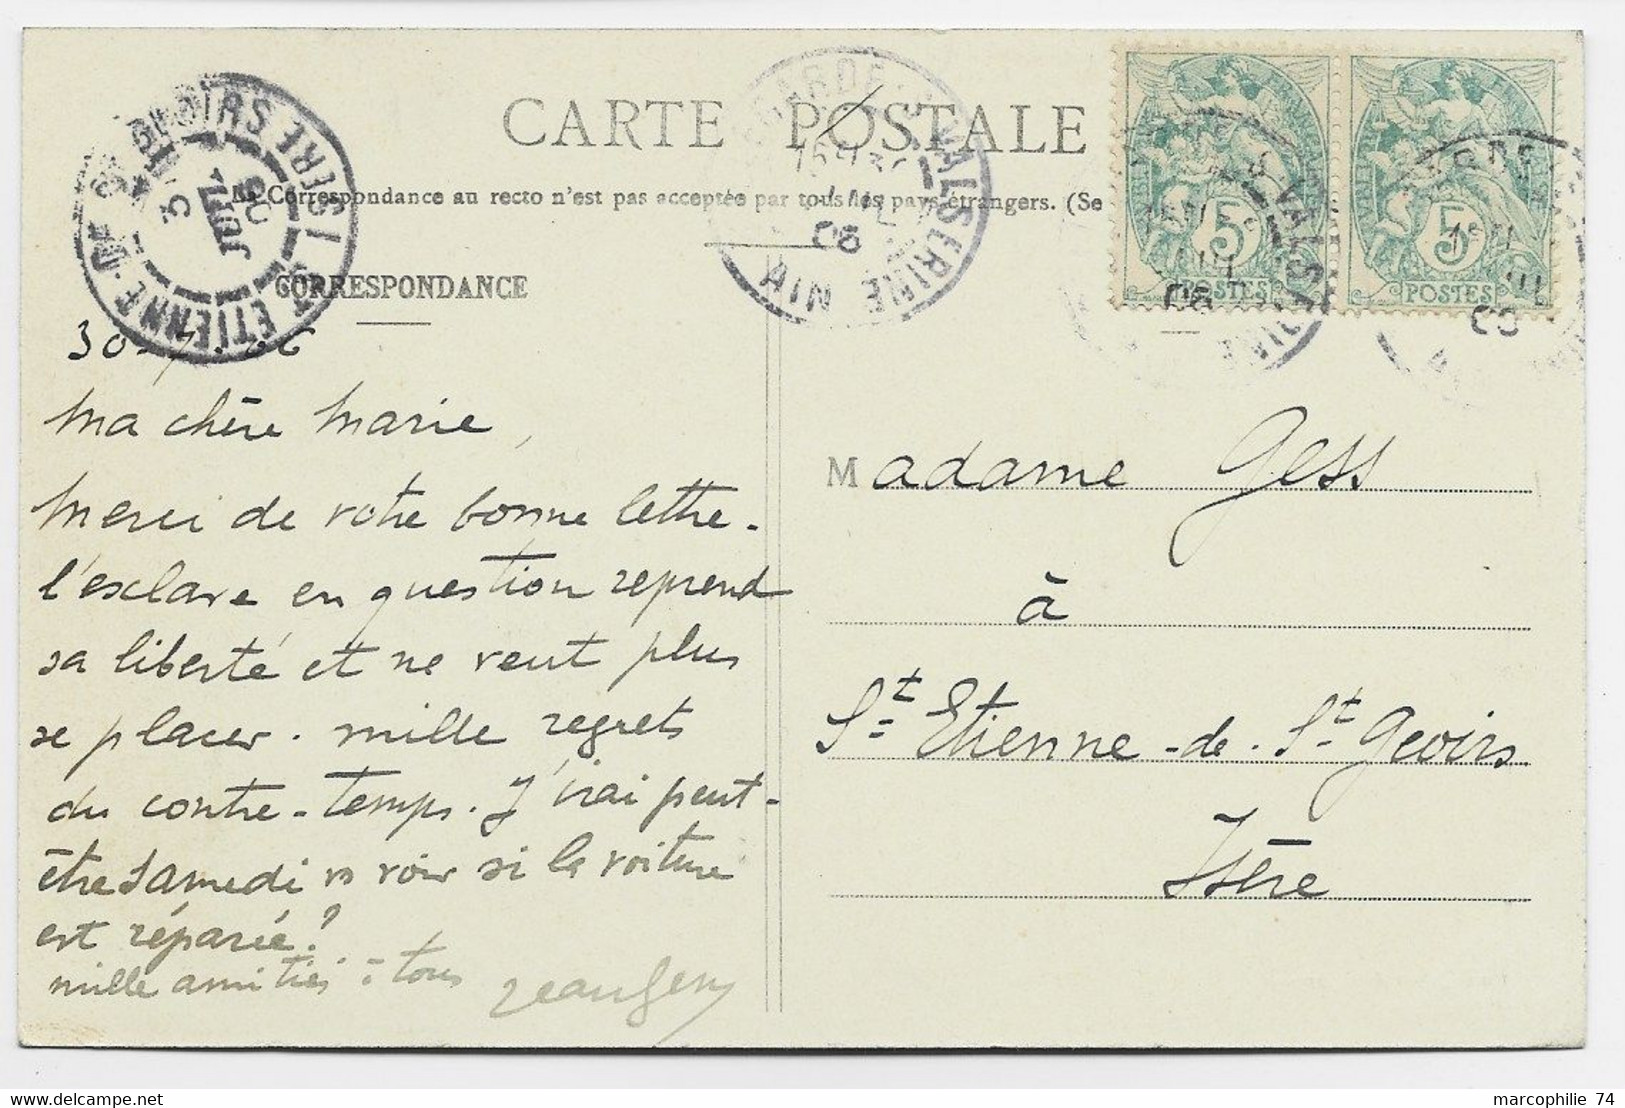 CARTE POSTALE
La Correspondance au recto n'est pas acceptée par tous les pays étrangers. (Se
CORRESPONDANCE
30-7-06
Ma chère Marie,
Merci de votre bonne lettre.
l'esclave en question reprend
sa liberté et ne veut plus
se placer. mille regrets
du contre-temps. J'irai peut-
être Samedi vs voir si la voiture
est réparée?
mille amitiés à tous
Madame Gess
à
St Etienne-de-St Geoirs
Isère
ST ETIENNE-DE-ST GEOIRS ISERE
3
JUIL
06
VALSERINE AIN
06
5
POSTES
06
5
POSTES
marcophilie 74